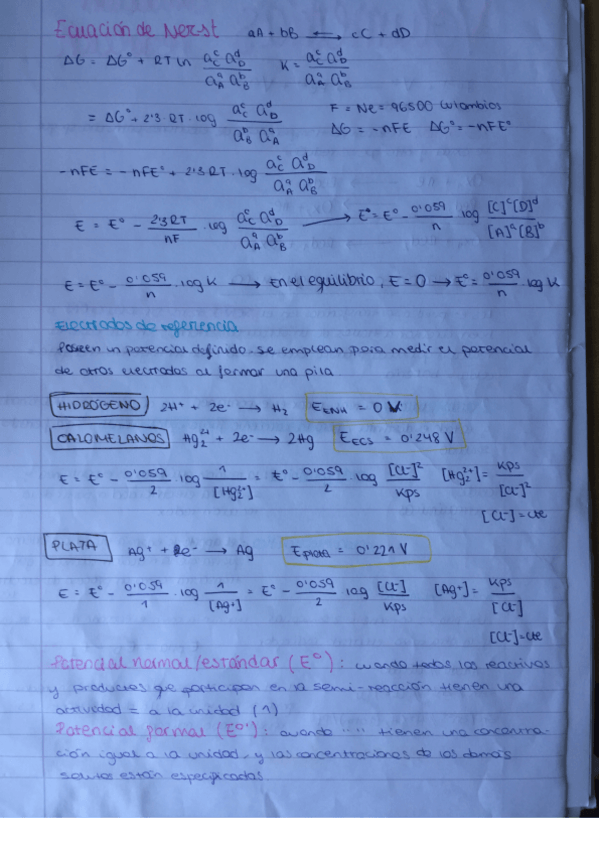 Ecuación de Nerst aA + bB ⟷ cC + dD
ΔG = ΔG° + RT ln (a_C^c a_D^d)/(a_A^a a_B^b) K = (a_C^c a_D^d)/(a_A^a a_B^b)
= ΔG° + 2'3·RT·log (a_C^c a_D^d)/(a_B^b a_A^a) F = Ne = 96500 culombios
ΔG = -nFE ΔG° = -nFE°
-nFE = -nFE° + 2'3RT·log (a_C^c a_D^d)/(a_A^a a_B^b)
E = E° - (2'3RT)/(nF) · log (a_C^c a_D^d)/(a_A^a a_B^b) ⟶ E = E° - (0'059)/n log ([C]^c[D]^d)/([A]^a[B]^b)
E = E° - (0'059)/n · log K ⟶ En el equilibrio, E = 0 → E° = (0'059)/n · log K
Electrodos de referencia
Poseen un potencial definido. Se emplean para medir el potencial
de otros electrodos al formar una pila
HIDRÓGENO 2H⁺ + 2e⁻ ⟶ H₂ E_ENH = 0 V
CALOMELANOS Hg₂²⁺ + 2e⁻ ⟶ 2Hg E_ECS = 0'248 V
E = E° - (0'059)/2 · log 1/[Hg₂²⁺] = E° - (0'059)/2 · log [Cl⁻]²/Kps [Hg₂²⁺] = Kps/[Cl⁻]²
[Cl⁻] = cte
PLATA Ag⁺ + e⁻ ⟶ Ag E_plata = 0'221 V
E = E° - (0'059)/1 · log 1/[Ag⁺] = E° - (0'059)/2 log [Cl⁻]/Kps [Ag⁺] = Kps/[Cl⁻]
[Cl⁻] = cte
Potencial normal/estándar (E°): cuando todos los reactivos
y productos que participan en la semi-reacción tienen una
actividad = a la unidad (1)
Potencial formal (E°'): cuando " " tienen una concentra-
ción igual a la unidad, y las concentraciones de los demás
solutos están especificadas.